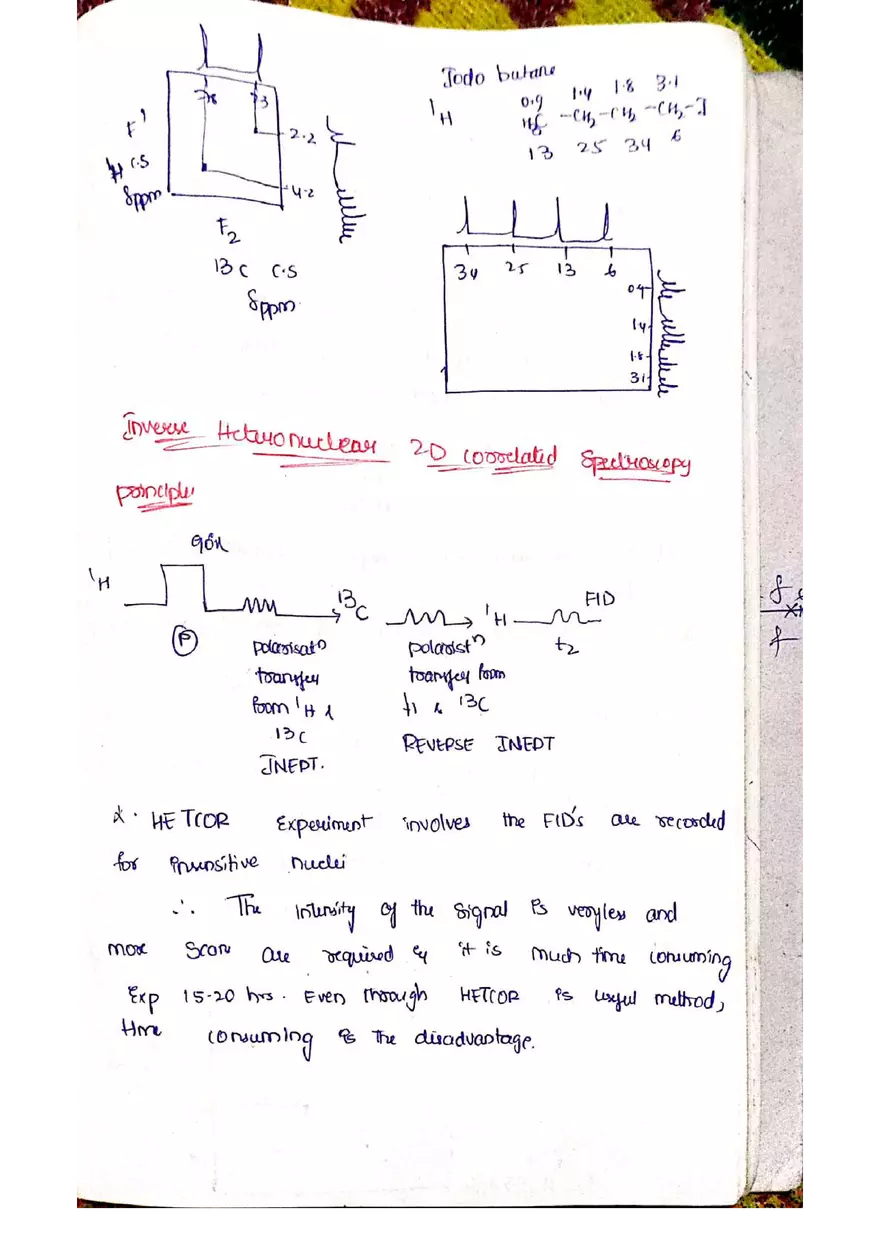 F1
1H C.S
δppm
78
73
2.2
4.2
F2
13C C.S
δppm
Iodo butane
1H
0.9 1.4 1.8 3.1
H3C -CH2-CH2-CH2-I
13 25 34 6
34 25 13 6
0.9
1.4
1.8
3.1
Inverse Heteronuclear 2D correlated Spectroscopy
principle
90x
1H
13C
1H
FID
P
polarisatn
transfer
from 1H &
13C
INEPT.
polaristn
transfer from
13C
REVERSE INEPT
t2
* . HETCOR Experiment involves the FID's are recorded
for insensitive nuclei
∴ The intensity of the signal is veryless and
more Scans are required & it is much time consuming
Exp 15-20 hrs. Even through HETCOR is useful method,
time consuming is the disadvantage.